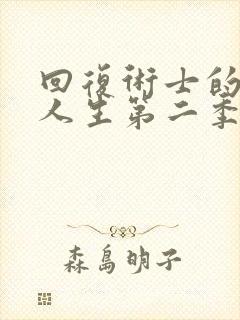 回復術士的
人生第二季
森島明子